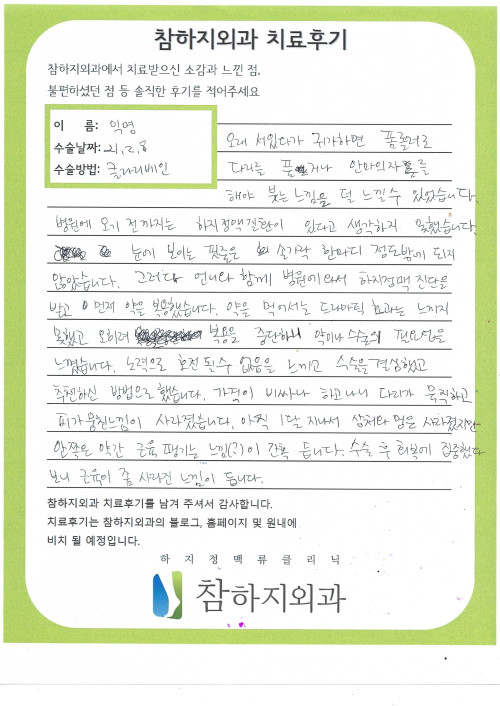 참하지외과 치료후기
참하지외과에서 치료받으신 소감과 느낀 점,
불편하셨던 점 등 솔직한 후기를 적어주세요
이 름: 익명
수술날짜: 21.2.8
수술방법: 클라리베인
오래 서있다가 귀가하면 폼롤러로
다리를 풀거나 안마의자를
해야 붓는 느낌을 덜 느낄수 있었습니다.
병원에 오기 전까지는 하지정맥질환이 있다고 생각하지 못했습니다.
눈에 보이는 핏줄은 손가락 한마디 정도밖에 되지
않았습니다. 그러다 언니와 함께 병원에 와서 하지정맥 진단을
받고 먼저 약을 복용했습니다. 약을 먹어서는 드라마틱 효과는 느끼지
못했고 오히려 복용을 중단하니 약이나 수술의 필요성을
느꼈습니다. 노력으로 호전될수 없음을 느끼고 수술을 결심했고
추천하신 방법으로 했습니다. 가격이 비싸나 하고나니 다리가 묵직하고
피가 뭉친느낌이 사라졌습니다. 아직 1달 지나서 상처와 멍은 사라졌지만
안쪽은 약간 근육 땡기는 느낌(?)이 간혹 듭니다. 수술 후 회복에 집중했다
보니 근육이 좀 사라진 느낌이 듭니다.
참하지외과 치료후기를 남겨 주셔서 감사합니다.
치료후기는 참하지외과의 블로그, 홈페이지 및 원내에
비치 될 예정입니다.
하지정맥류클리닉
참하지외과